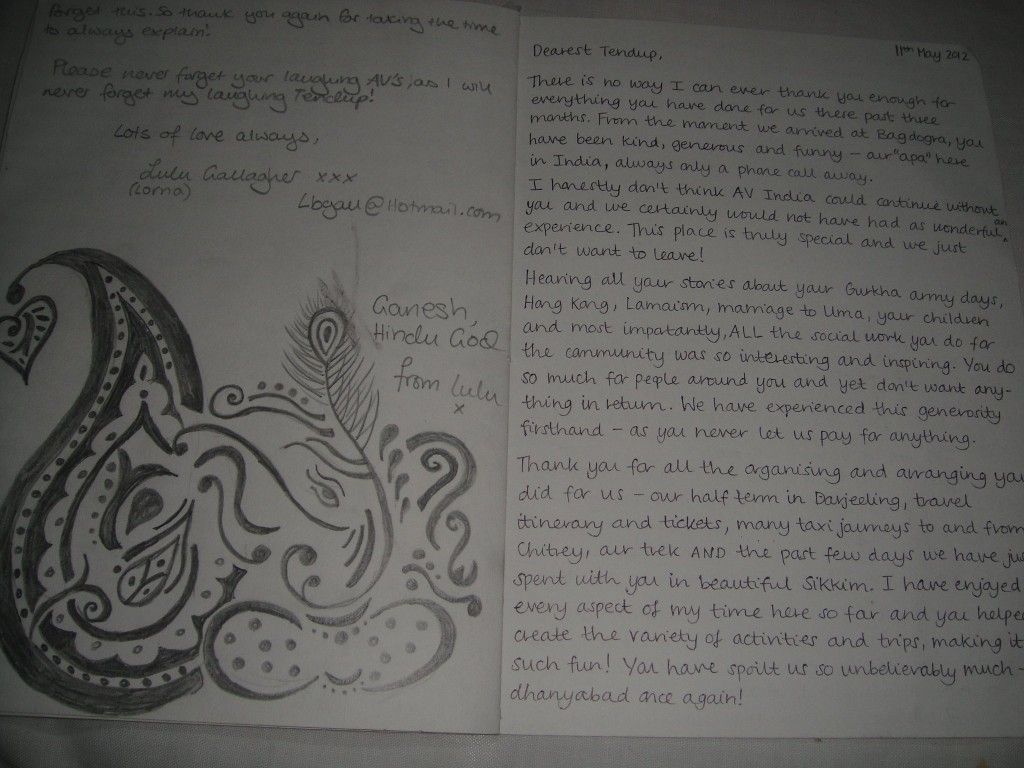 forget this. So thank you again for taking the time
to always explain!
Please never forget your laughing AV's, as I will
never forget my laughing Tendup!
Lots of love always,
Lulu Gallagher xxx
(Lorna)
Lbgall@Hotmail.com
Ganesh,
Hindu God
from Lulu
x
11th May 2012
Dearest Tendup,
There is no way I can ever thank you enough for
everything you have done for us these past three
months. From the moment we arrived at Bagdogra, you
have been kind, generous and funny – our "apa" here
in India, always only a phone call away.
I honestly don't think AV India could continue without
you and we certainly would not have had as wonderful an
experience. This place is truly special and we just
don't want to leave!
Hearing all your stories about your Gurkha army days,
Hong Kong, Lamaism, marriage to Uma, your children
and most importantly, ALL the social work you do for
the community was so interesting and inspiring. You do
so much for people around you and yet don't want any-
thing in return. We have experienced this generosity
firsthand – as you never let us pay for anything.
Thank you for all the organising and arranging you
did for us – our half term in Darjeeling, travel
itinerary and tickets, many taxi journeys to and from
Chitrey, our trek AND the past few days we have jus
spent with you in beautiful Sikkim. I have enjoyed
every aspect of my time here so far and you helped
create the variety of activities and trips, making it
such fun! You have spoilt us so unbelievably much –
dhanyabad once again!